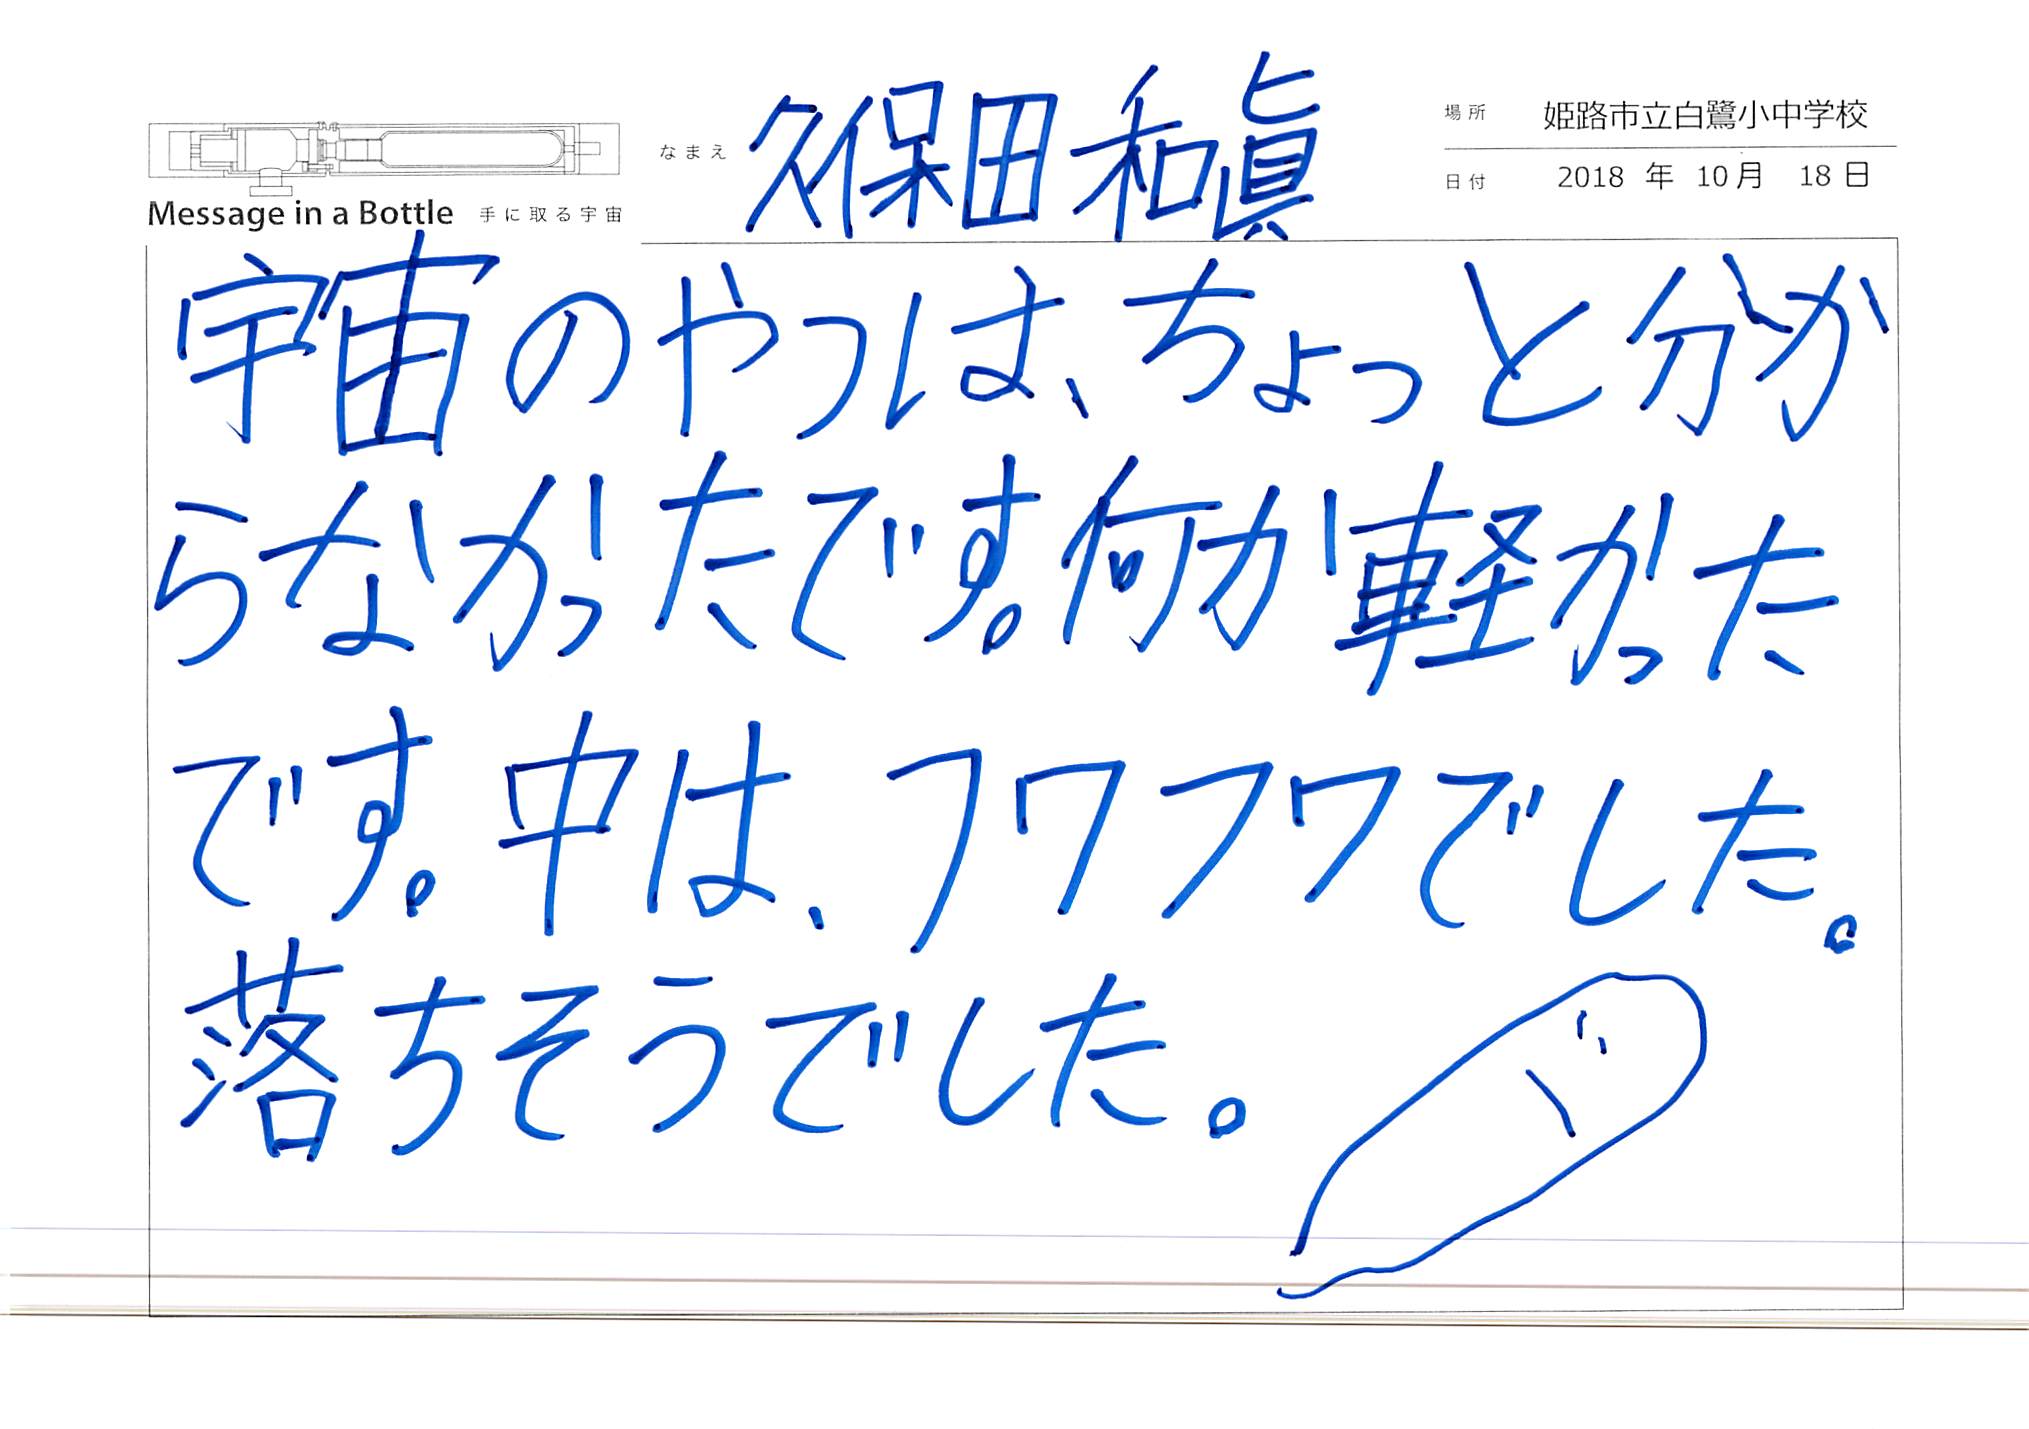 Message in a Bottle 手に取る宇宙
なまえ 久保田和眞
場所 姫路市立白鷺小中学校
日付 2018 年 10 月 18 日
宇宙のやつは、ちょっと分か
らなかったです。何か軽かった
です。中は、フワフワでした。
落ちそうでした。